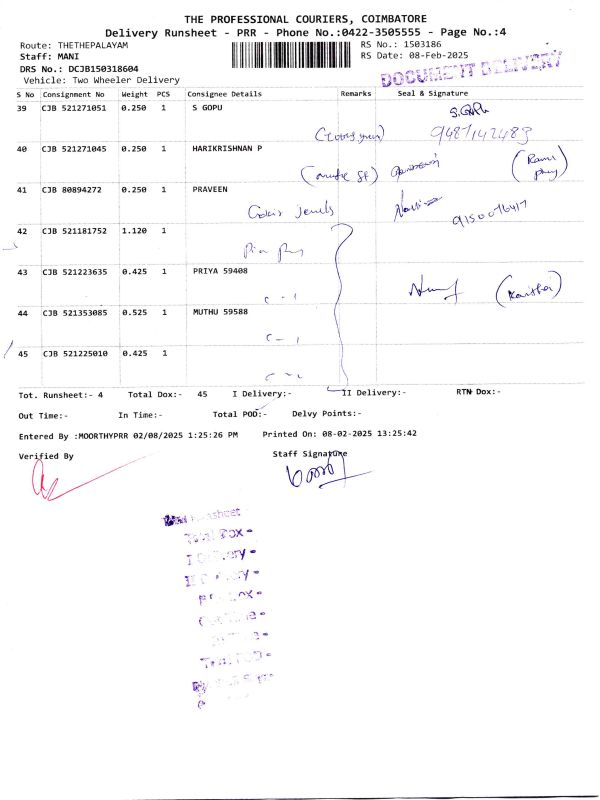 THE PROFESSIONAL COURIERS, COIMBATORE
Delivery Runsheet - PRR - Phone No.:0422-3505555 - Page No.:4
Route: THETHEPALAYAM RS No.: 1503186
Staff: MANI RS Date: 08-Feb-2025
DRS No.: DCJB150318604
Vehicle: Two Wheeler Delivery
DOCUMENT DELIVERY
S No Consignment No Weight PCS Consignee Details Remarks Seal & Signature
39 CJB 521271051 0.250 1 S GOPU S.Gopu
9487142483
40 CJB 521271045 0.250 1 HARIKRISHNAN P
41 CJB 80894272 0.250 1 PRAVEEN
jewels
42 CJB 521181752 1.120 1
43 CJB 521223635 0.425 1 PRIYA 59408
(Kavitha)
44 CJB 521353085 0.525 1 MUTHU 59588
45 CJB 521225010 0.425 1
Tot. Runsheet:- 4 Total Dox:- 45 I Delivery:- II Delivery:- RTN Dox:-
Out Time:- In Time:- Total POD:- Delvy Points:-
Entered By :MOORTHYPRR 02/08/2025 1:25:26 PM Printed On: 08-02-2025 13:25:42
Verified By Staff Signature
Total Dox -
I Delivery -
II Delivery -
Out Time -
Total POD -